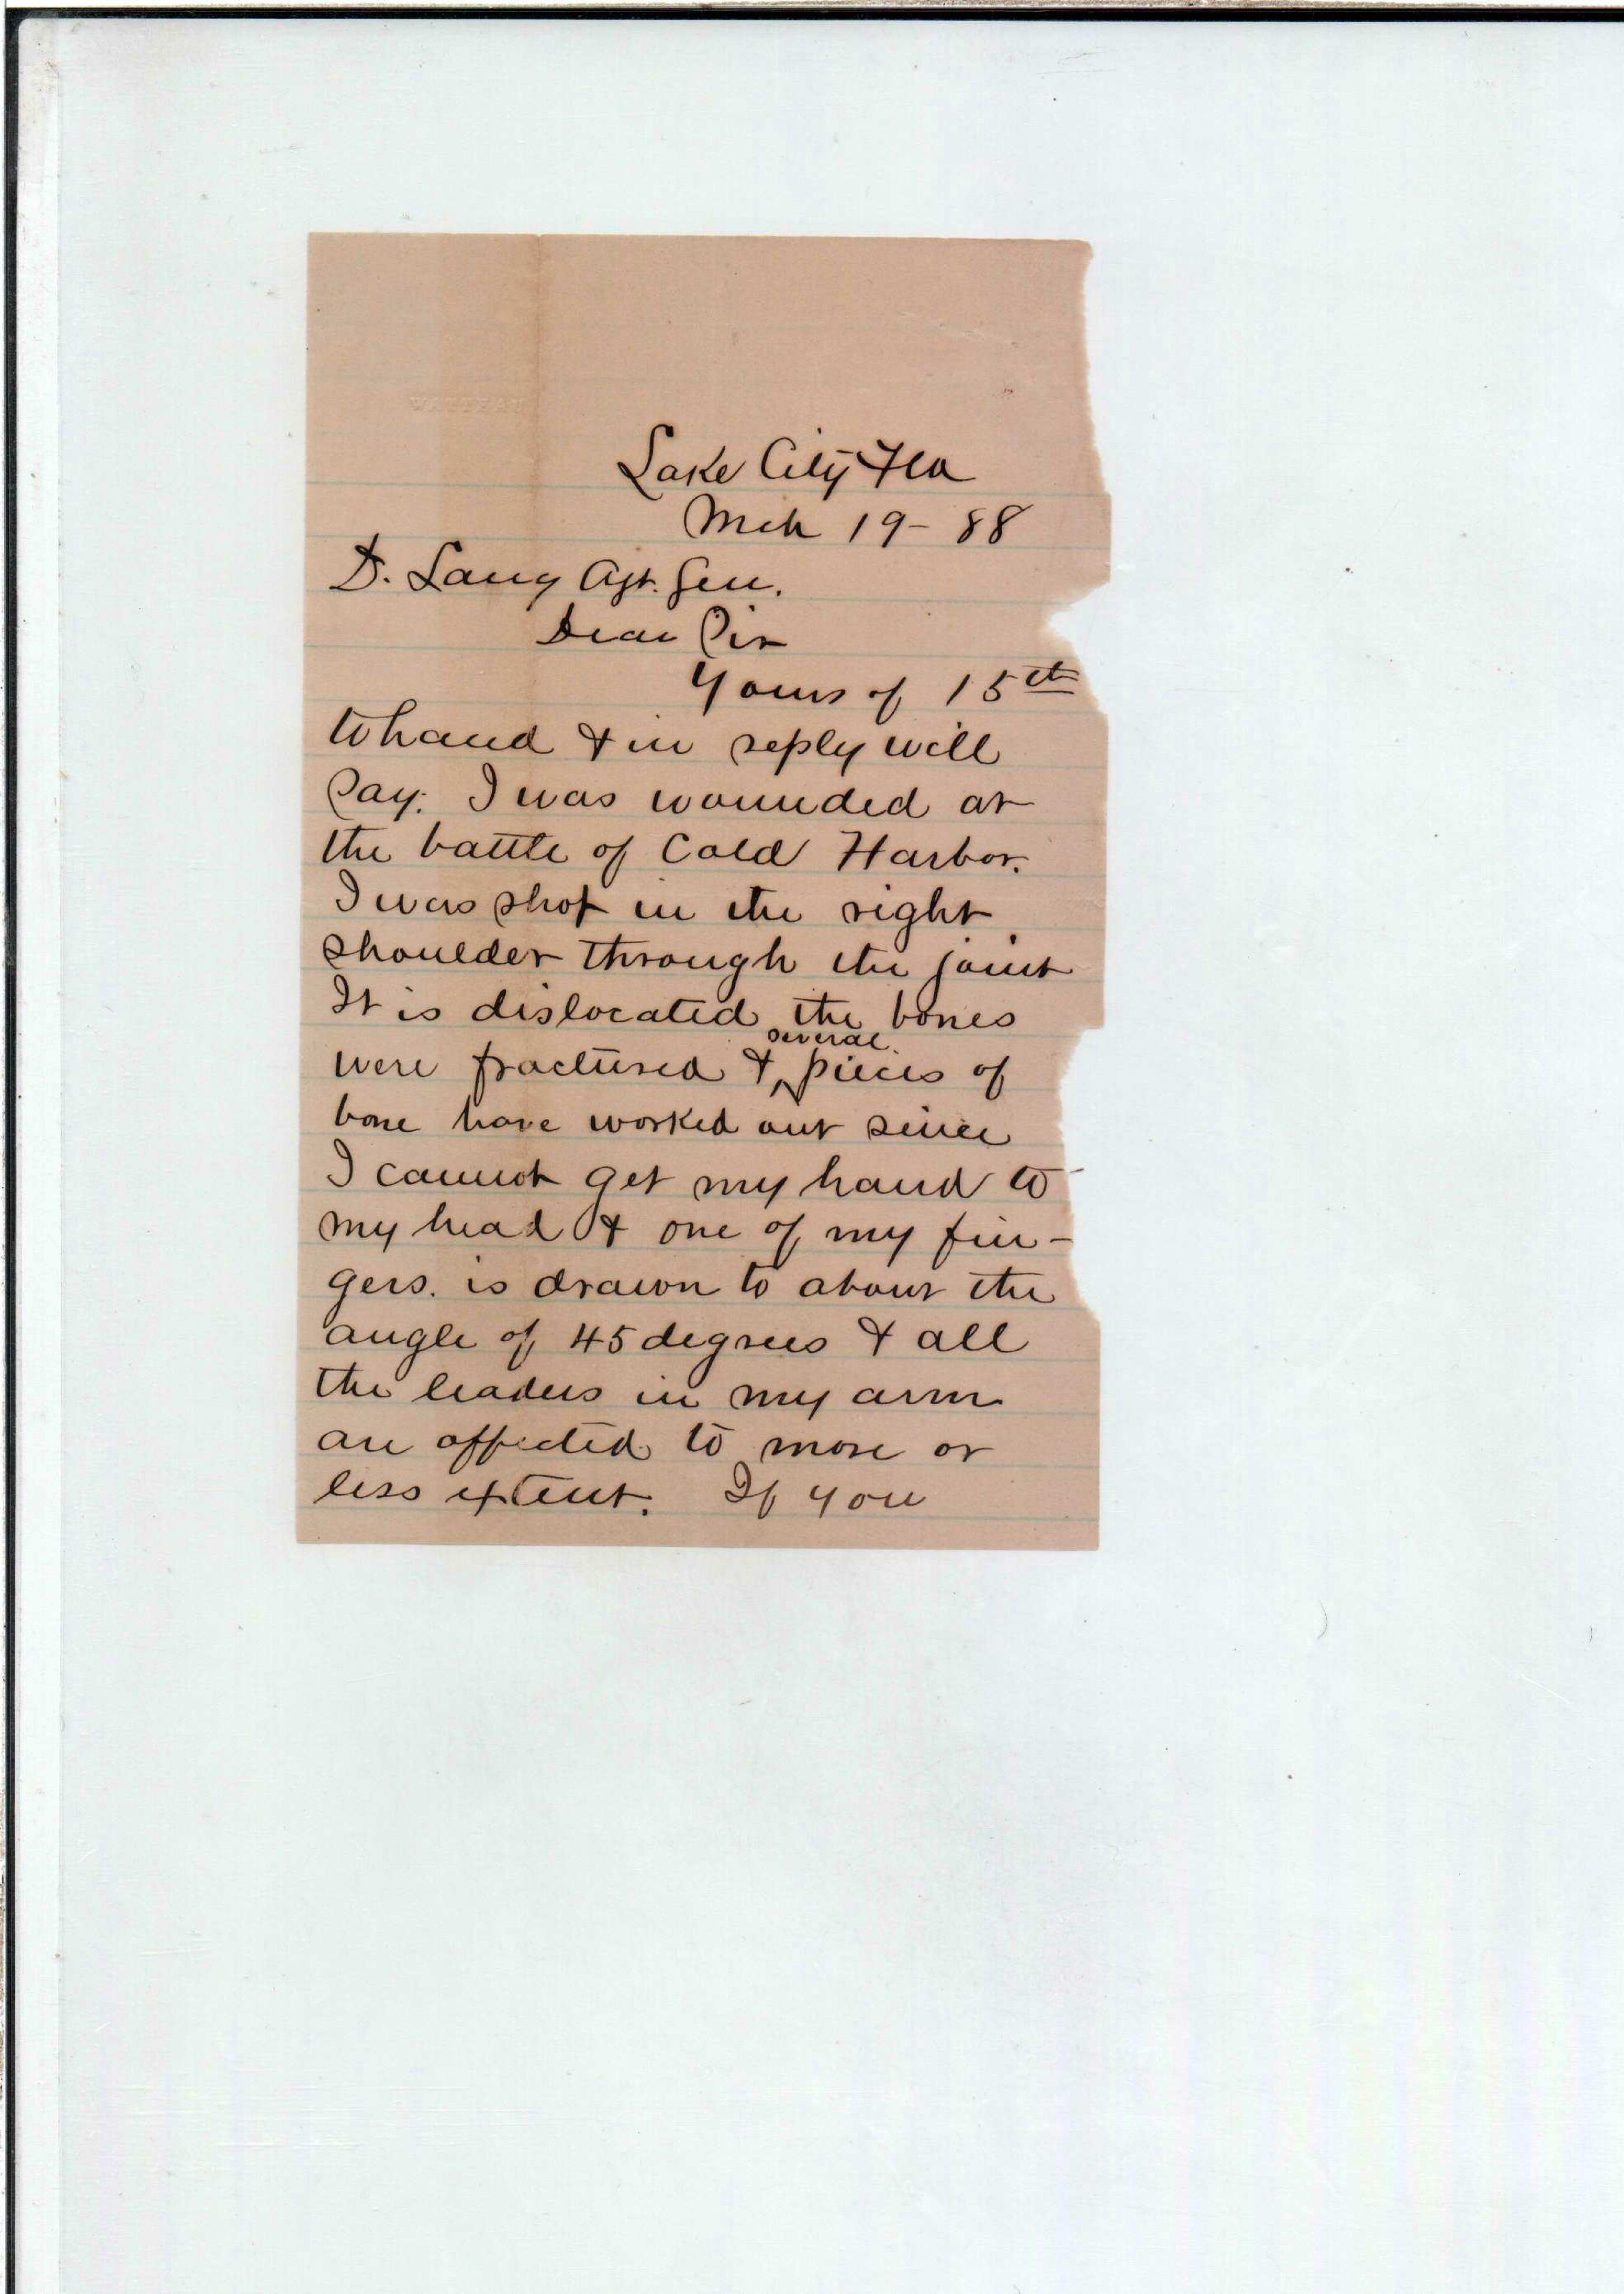 WATTEAU
Lake City Fla
Mch 19 - 88
D. Lang Ajt. Gen.
Dear Sir
Yours of 15th
to hand & in reply will
say: I was wounded at
the battle of Cold Harbor.
I was shot in the right
shoulder through the joint
It is dislocated the bones
several
were fractured & pieces of
bone have worked out since
I cannot get my hand to
my head & one of my fin-
gers. is drawn to about the
angle of 45 degrees & all
the leaders in my arm
are affected to more or
less extent. If you